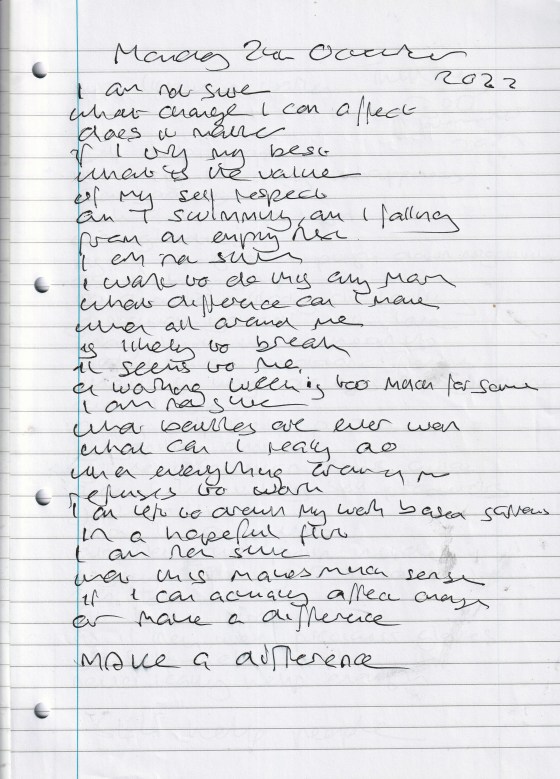 Monday 24th October
2022
I am not sure
what change I can affect
does it matter
if I try my best
what is the value
of my self respect
am I swimming, am I falling
from an empty
I am not sure
I want to do this any more
what difference can I make
when all around me
is likely to break
it seems to me,
a working week is too much for some
I am not sure
what battles are ever won
what can I really do
when everything around me
refuses to work
I am left to drown my work based sorrows
in a hopeful
I am not sure
that this makes much sense
if I can actually affect change
or make a difference
MAKE a difference